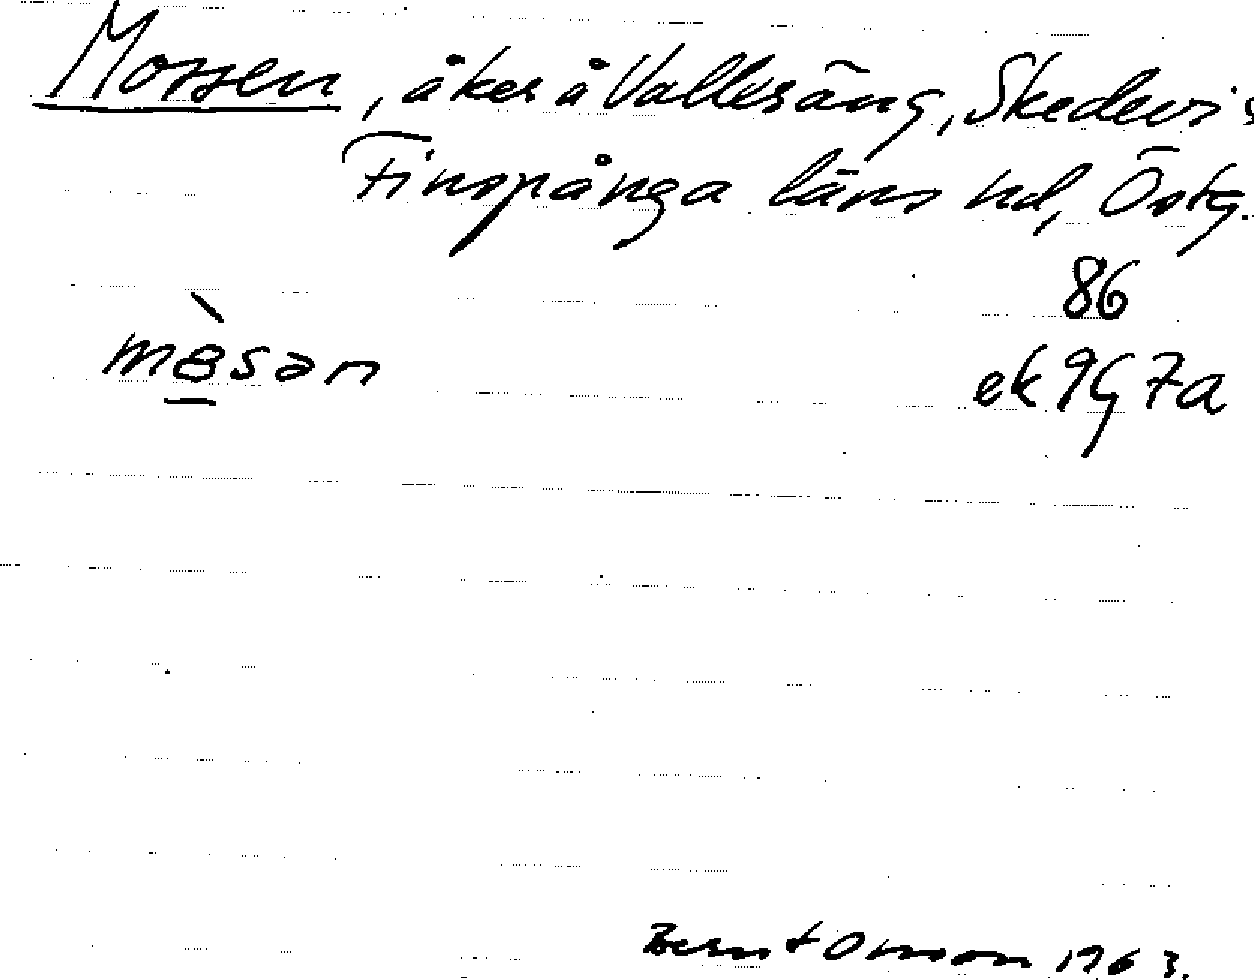 Mossen, åker å Vallesäng, Skedevi s
Finspånga läns hd, Östg.
86
mɵ̀san
ek 9G 7a
Bernt Omson 1963.